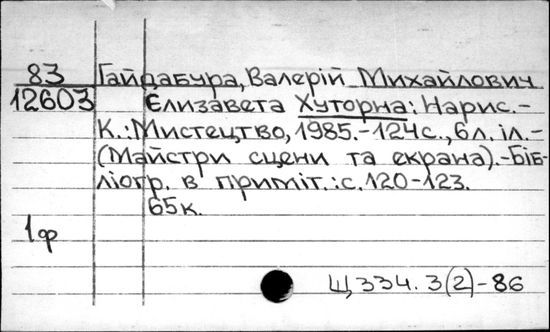 83 Гайдабура, Валерій Михайлович
12603 Єлизавета Хуторна: Нарис.-
К.: Мистецтво, 1985.-124с., 6л. іл.-
(Майстри сцени та екрана).-Біб-
ліогр. в приміт.: с. 120-123.
65к.
1ф
Щ 334. 3(2)-86